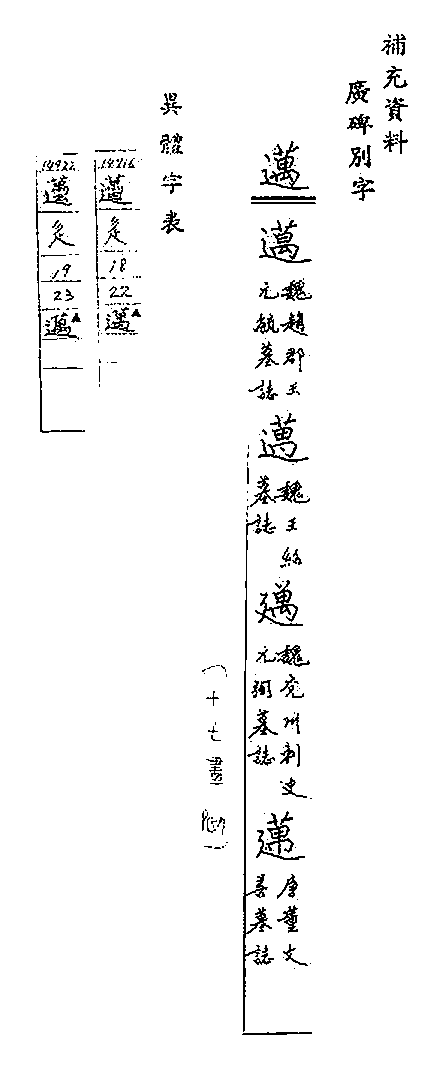 補充資料
廣碑別字
邁
邁
魏趙郡王
元毓墓誌
邁
魏王紹
墓誌
邁
魏兗州刺史
元弼墓誌
邁
唐董文
墓誌
(十七畫
異體字表
14916
辵
18
22
邁
14922
辵
19
23
邁